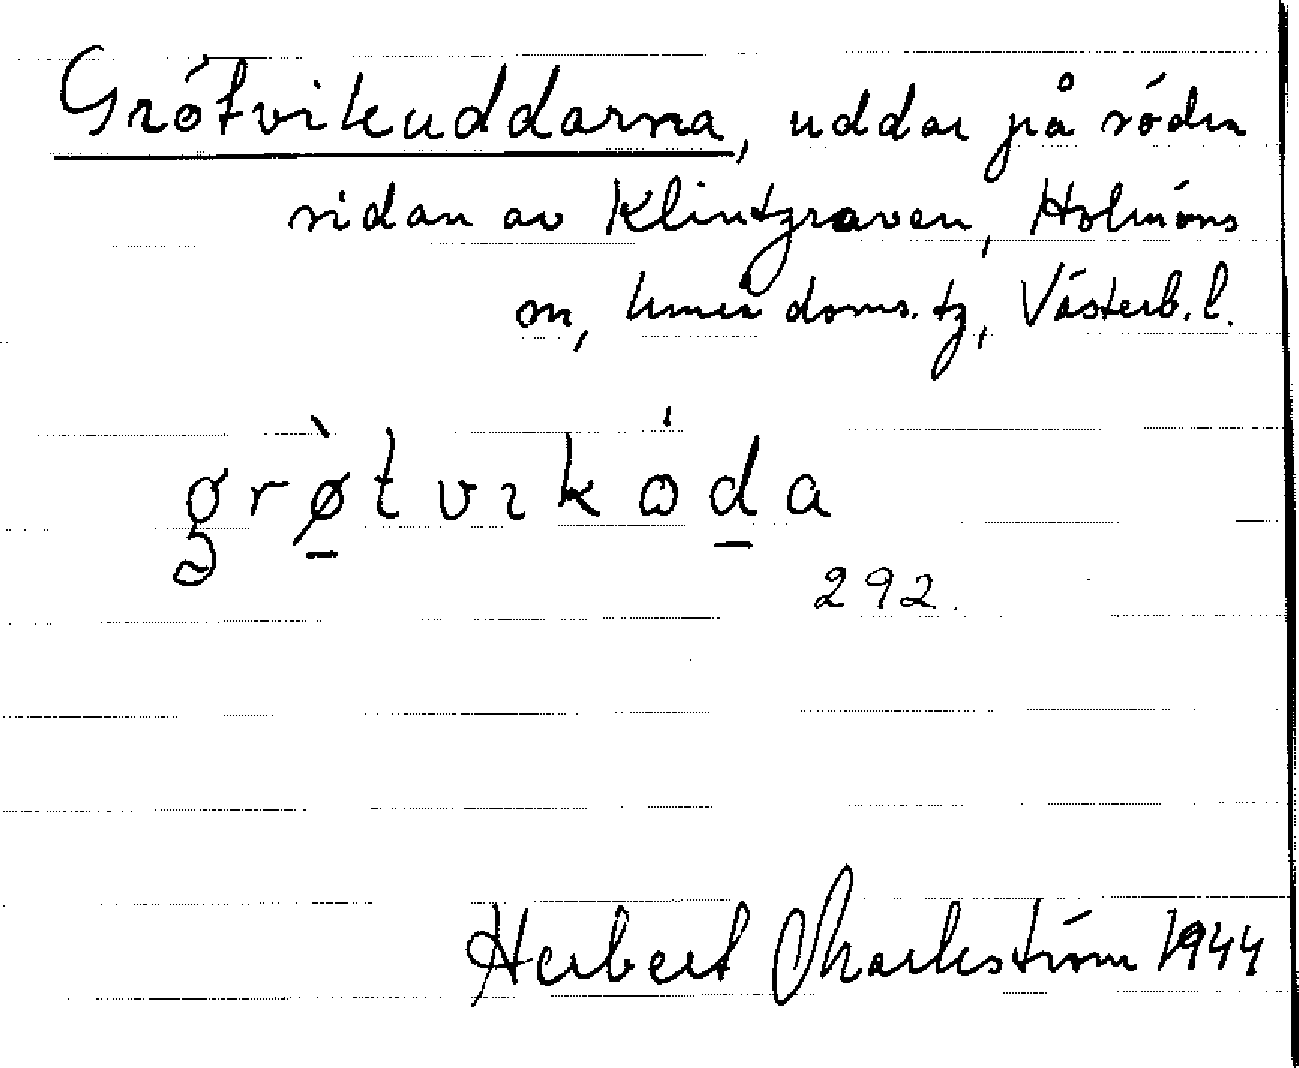 Grötvikuddarna, uddar på södra
sidan av Klintgraven, Holmöns
sn, Umeå doms. tg, Västerb. l.
grø̠̀tvɪkωd̠a
292.
Herbert Markström 1944